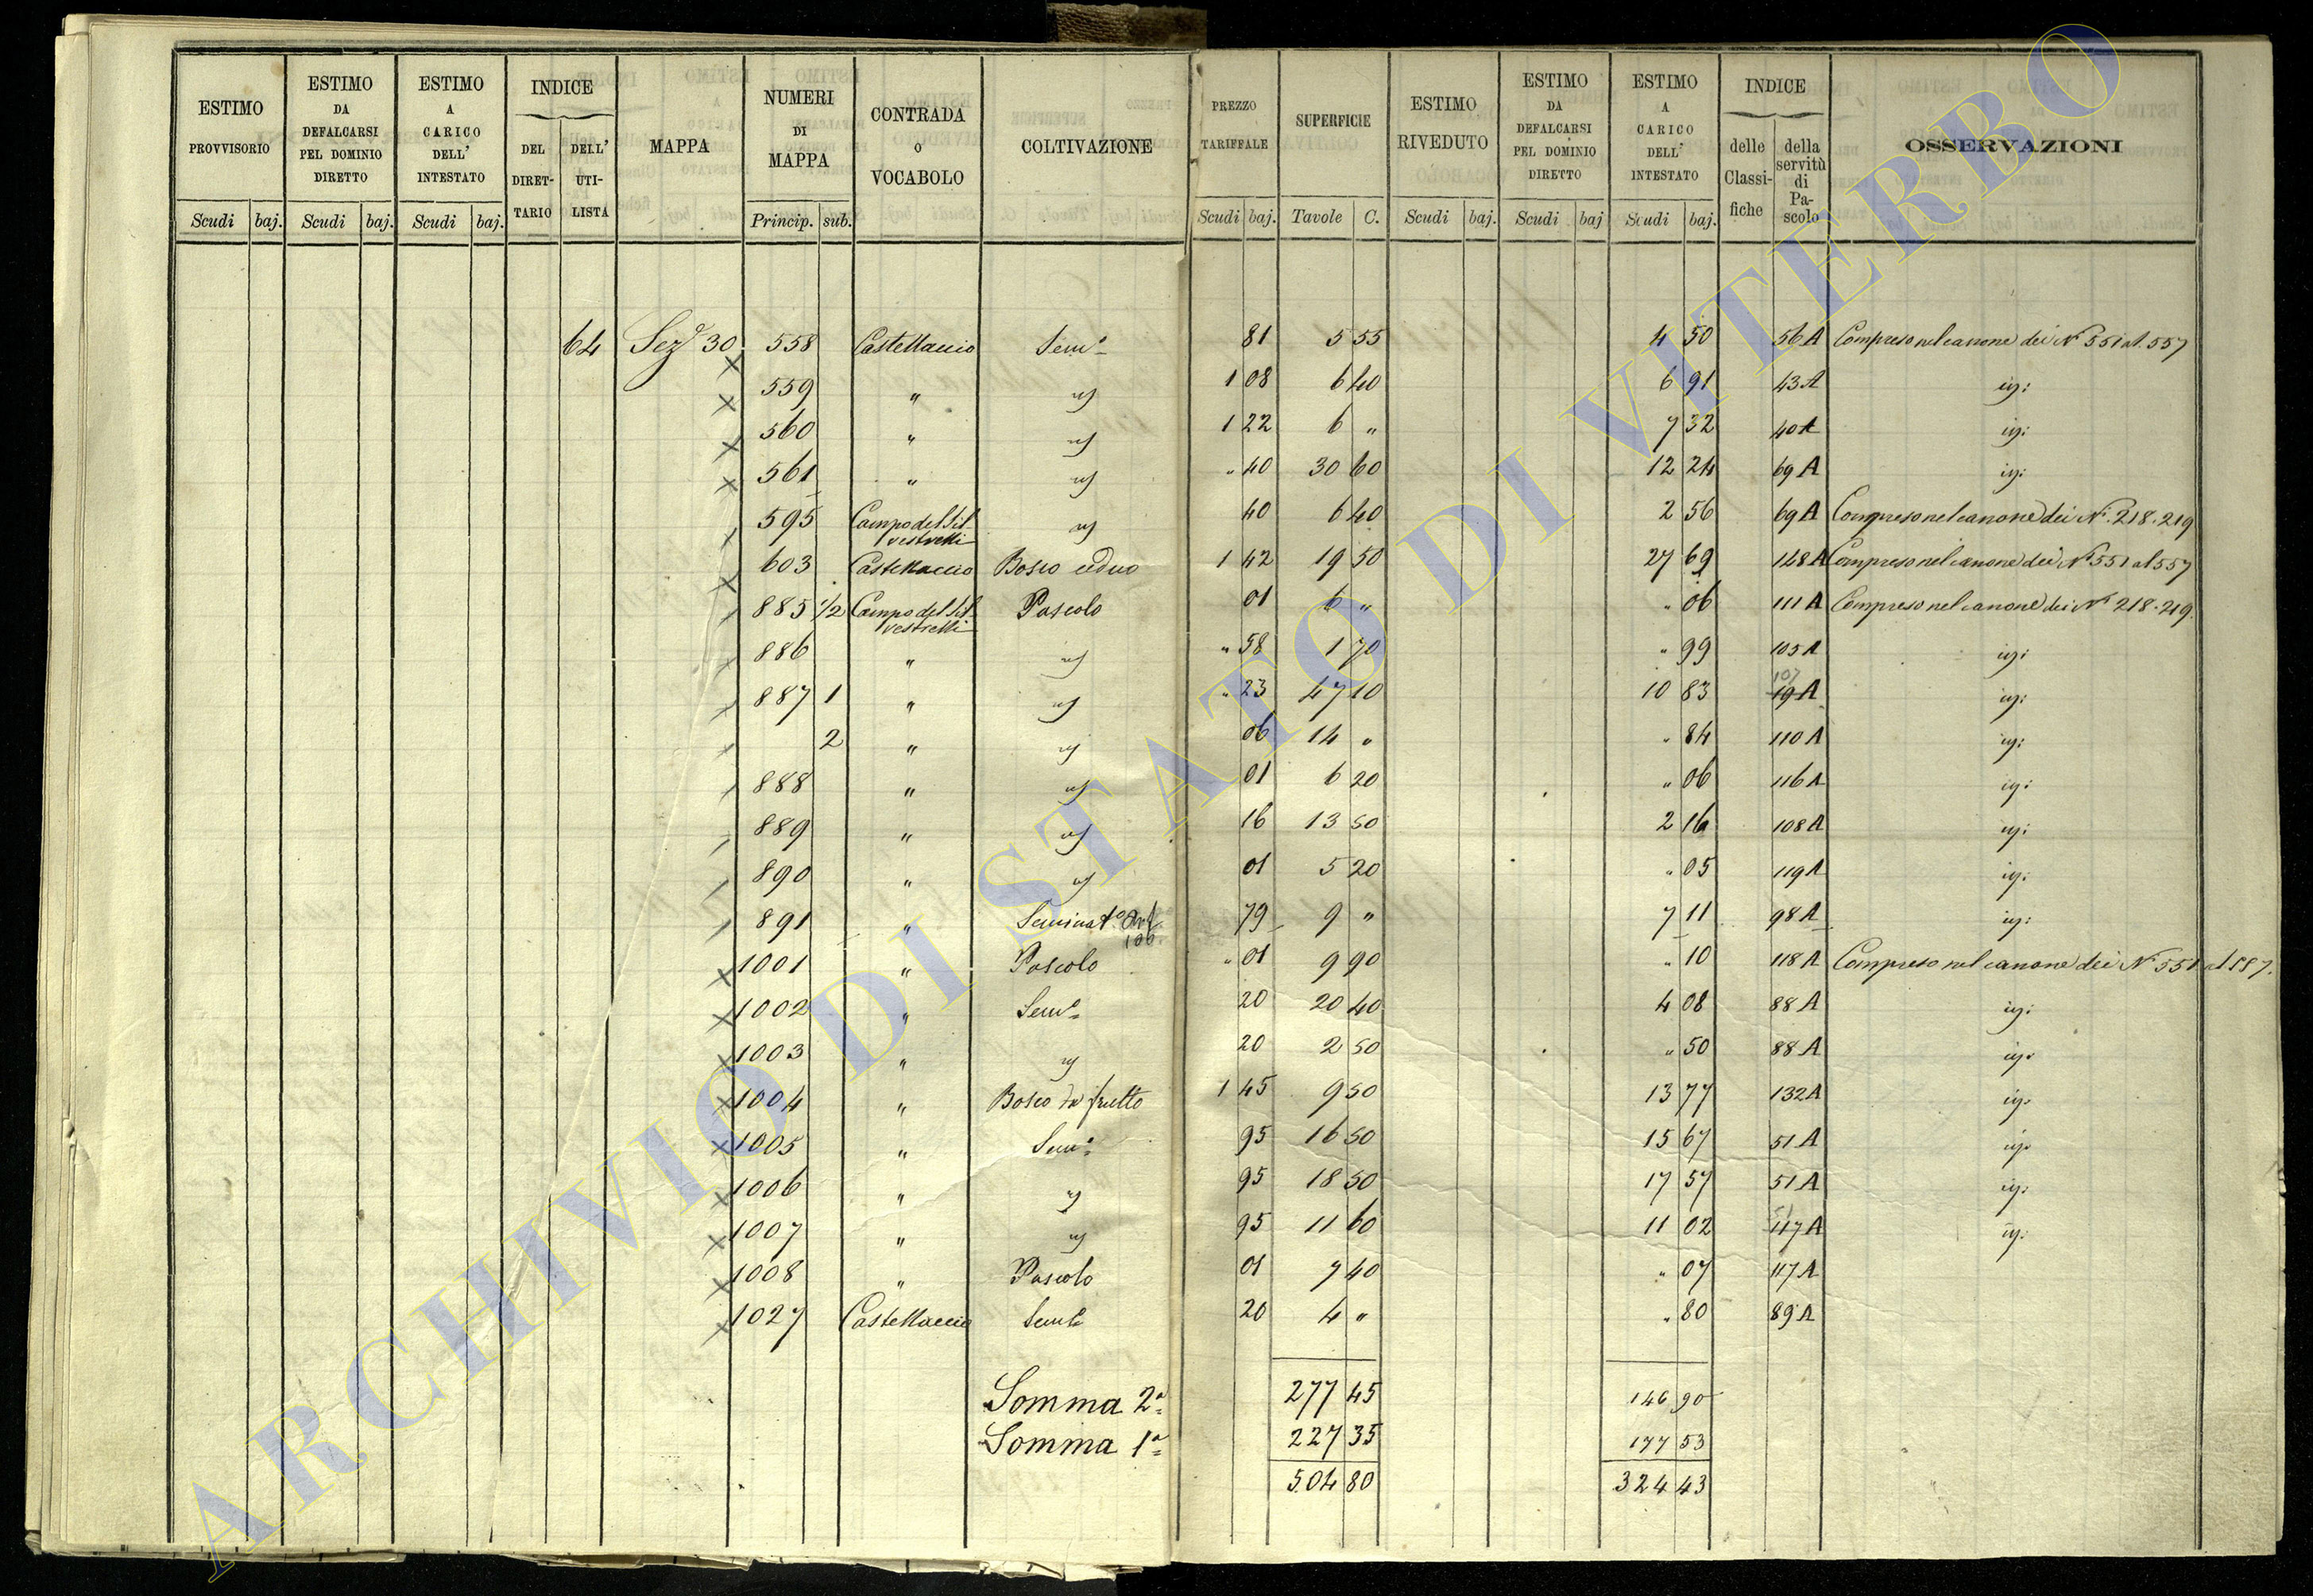 ESTIMO PROVVISORIO
ESTIMO DA DEFALCARSI PEL DOMINIO DIRETTO
ESTIMO A CARICO DELL' INTESTATO
INDICE
DEL DIRET-TARIO
DELL' UTI-LISTA
MAPPA
NUMERI DI MAPPA
CONTRADA O VOCABOLO
COLTIVAZIONE
PREZZO TARIFFALE
SUPERFICIE
ESTIMO RIVEDUTO
ESTIMO DA DEFALCARSI PEL DOMINIO DIRETTO
ESTIMO A CARICO DELL' INTESTATO
INDICE
delle Classi-fiche
della servitù di Pa-scolo
OSSERVAZIONI
Scudi baj. Scudi baj. Scudi baj. Princip. sub. Scudi baj. Tavole C. Scudi baj. Scudi baj Scudi baj.
64 Sez 30 558 Castellaccio Sem° 81 5 55 4 50 56 A Compreso nel canone dei N° 551 al 557
559 " " 1 08 6 40 6 91 43 A ig:
560 " " 1 22 6 " 7 32 40 A ig:
561 " " " 40 30 60 12 24 69 A ig:
595 Campo del Sil-vestrelli " 40 6 40 2 56 69 A Compreso nel canone dei N° 218-219
603 Castellaccio Bosco ceduo 1 42 19 50 27 69 148 A Compreso nel canone dei N° 551 al 557
885 1/2 Campo del Sil-vestrelli Pascolo 01 6 " " 06 111 A Compreso nel canone dei N° 218-219
886 " " " 58 1 70 " 99 105 A ig:
887 1 " " " 23 47 10 10 83 107 19 A ig:
2 " " 06 14 " " 84 110 A ig:
888 " " 01 6 20 " 06 116 A ig:
889 " " 16 13 50 2 16 108 A ig:
890 " " 01 5 20 " 05 119 A ig:
891 " Seminat° 79 9 " 7 11 98 A ig:
1001 " Pascolo " 01 9 90 " 10 118 A Compreso nel canone dei N° 551 al 557.
1002 " Sem° 20 20 40 4 08 88 A ig:
1003 " " 20 2 50 " 50 88 A ig:
1004 " Bosco da frutto 1 45 9 50 13 77 132 A ig:
1005 " Sem° 95 16 50 15 67 51 A ig:
1006 " " 95 18 50 17 57 51 A ig:
1007 " " 95 11 60 11 02 117 A ig:
1008 " Pascolo 01 7 40 " 07 117 A
1027 Castellaccio Sem° 20 4 " " 80 89 A
Somma 2ª 277 45 146 90
Somma 1ª 227 35 177 53
504 80 324 43
ARCHIVIO DI STATO DI VITERBO